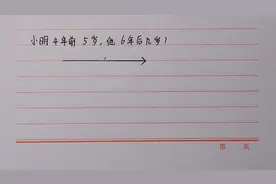 小明4年前5岁,他6年后几岁?
第 页